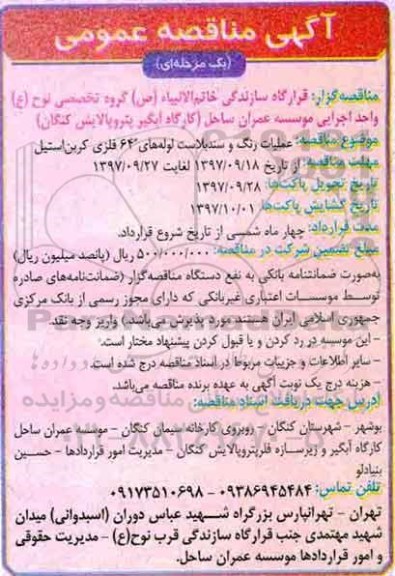 آگهی مناقصه عمومی
(یک مرحله‌ای)
مناقصه‌گزار: قرارگاه سازندگی خاتم‌الانبیاء (ص) گروه تخصصی نوح (ع)
واحد اجرایی موسسه عمران ساحل (کارگاه آبگیر پتروپالایش کنگان)
موضوع مناقصه: عملیات رنگ و سندبلاست لوله‌های ″۶۴ فلزی کربن‌استیل
مهلت مناقصه: از تاریخ ۱۳۹۷/۰۹/۱۸ لغایت ۱۳۹۷/۰۹/۲۷
تاریخ تحویل پاکت‌ها: ۱۳۹۷/۰۹/۲۸
تاریخ گشایش پاکت‌ها: ۱۳۹۷/۱۰/۰۱
مدت قرارداد: چهار ماه شمسی از تاریخ شروع قرارداد.
مبلغ تضمین شرکت در مناقصه: ۵۰۰/۰۰۰/۰۰۰ ریال (پانصد میلیون ریال)
به‌صورت ضمانتنامه بانکی به نفع دستگاه مناقصه‌گزار (ضمانت‌نامه‌های صادره
توسط موسسات اعتباری غیربانکی که دارای مجوز رسمی از بانک مرکزی
جمهوری اسلامی ایران هستند مورد پذیرش می‌باشد) واریز وجه نقد.
- این موسسه در رد کردن و یا قبول کردن پیشنهاد مختار است.
- سایر اطلاعات و جزییات مربوط در اسناد مناقصه درج شده است.
- هزینه درج یک نوبت آگهی به عهده برنده مناقصه می‌باشد.
آدرس جهت دریافت اسناد مناقصه:
بوشهر - شهرستان کنگان - روبروی کارخانه سیمان کنگان - موسسه عمران ساحل
کارگاه آبگیر و زیرسازه فلرپتروپالایش کنگان - مدیریت امور قراردادها - حسین
بنیادلو
تلفن تماس: ۰۹۳۸۶۹۴۵۴۸۴ - ۰۹۱۷۳۵۱۰۶۹۸
تهران - تهرانپارس بزرگراه شهید عباس دوران (اسبدوانی) میدان
شهید مهتمدی جنب قرارگاه سازندگی قرب نوح(ع) - مدیریت حقوقی
و امور قراردادها موسسه عمران ساحل.